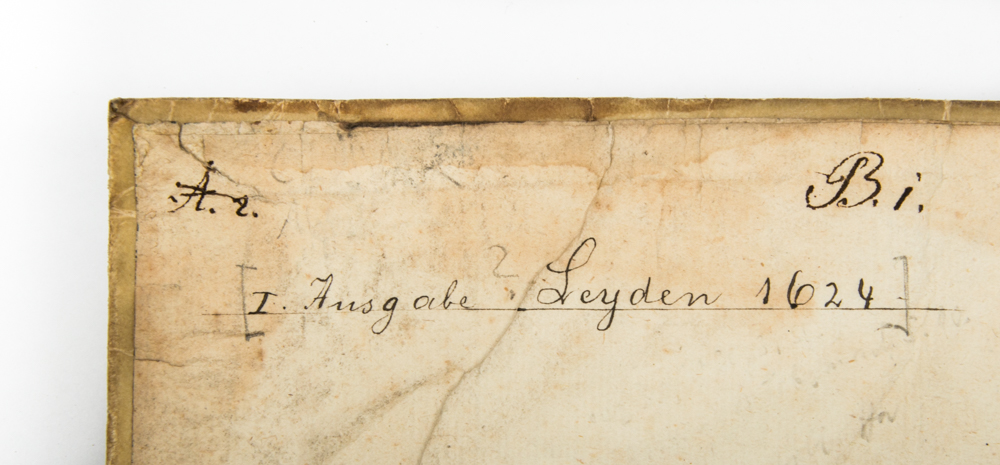 A. 2. B. i.
2
[I. Ausgabe Leyden 1624]